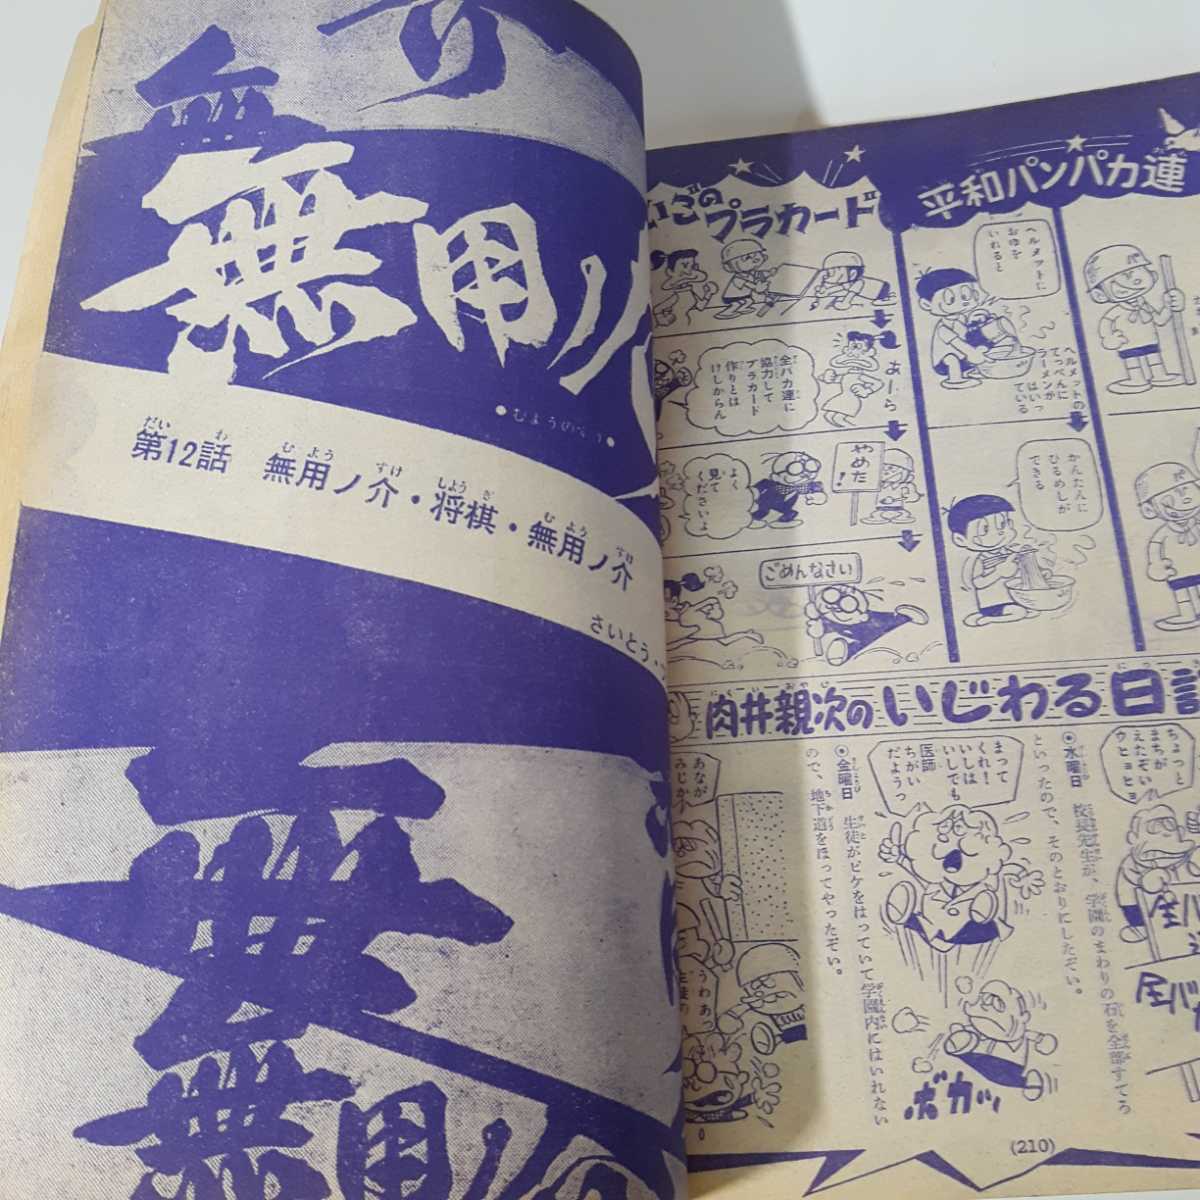 無用ノ
●むようのすけ●
第12話 無用ノ介・将棋・無用ノ介
さいとう・
無
無用ノ
平和パンパカ連
ヘルメットに
おゆを
いれると
ヘルメットの
てっぺんに
ラーメンが
はいっ
ている
かんたんに
ひるめしが
できる
いごの
プラカード
あーら
全バカ連に
協力して
プラカード
作りとは
けしからん
やめた!
よく
見て
くださいよ
ごめんなさい
肉井親次のいじわる日記
ちょっと
まちが
えたぞい
ウヒョヒョ
●水曜日 校長先生が、学園のまわりの石を全部すてろ
といったので、そのとおりにしたぞい。
まって
くれ!
いしは
いしでも
医師
ちがい
だようっ
ボカッ
●金曜日 生徒がピケをはっていて学園内にはいれない
ので、地下道をほってやったぞい。
あなが
みじか
うわあっ
(210)